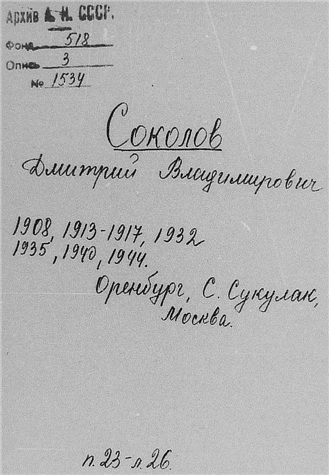 Архив А. Н. СССР.
Фонд 518
Опись 3
№ 1534
Соколов
Дмитрий Владимирович
1908, 1913-1917, 1932
1935, 1940, 1944.
Оренбург, С. Сукулак,
Москва.
п. 23-л. 26.